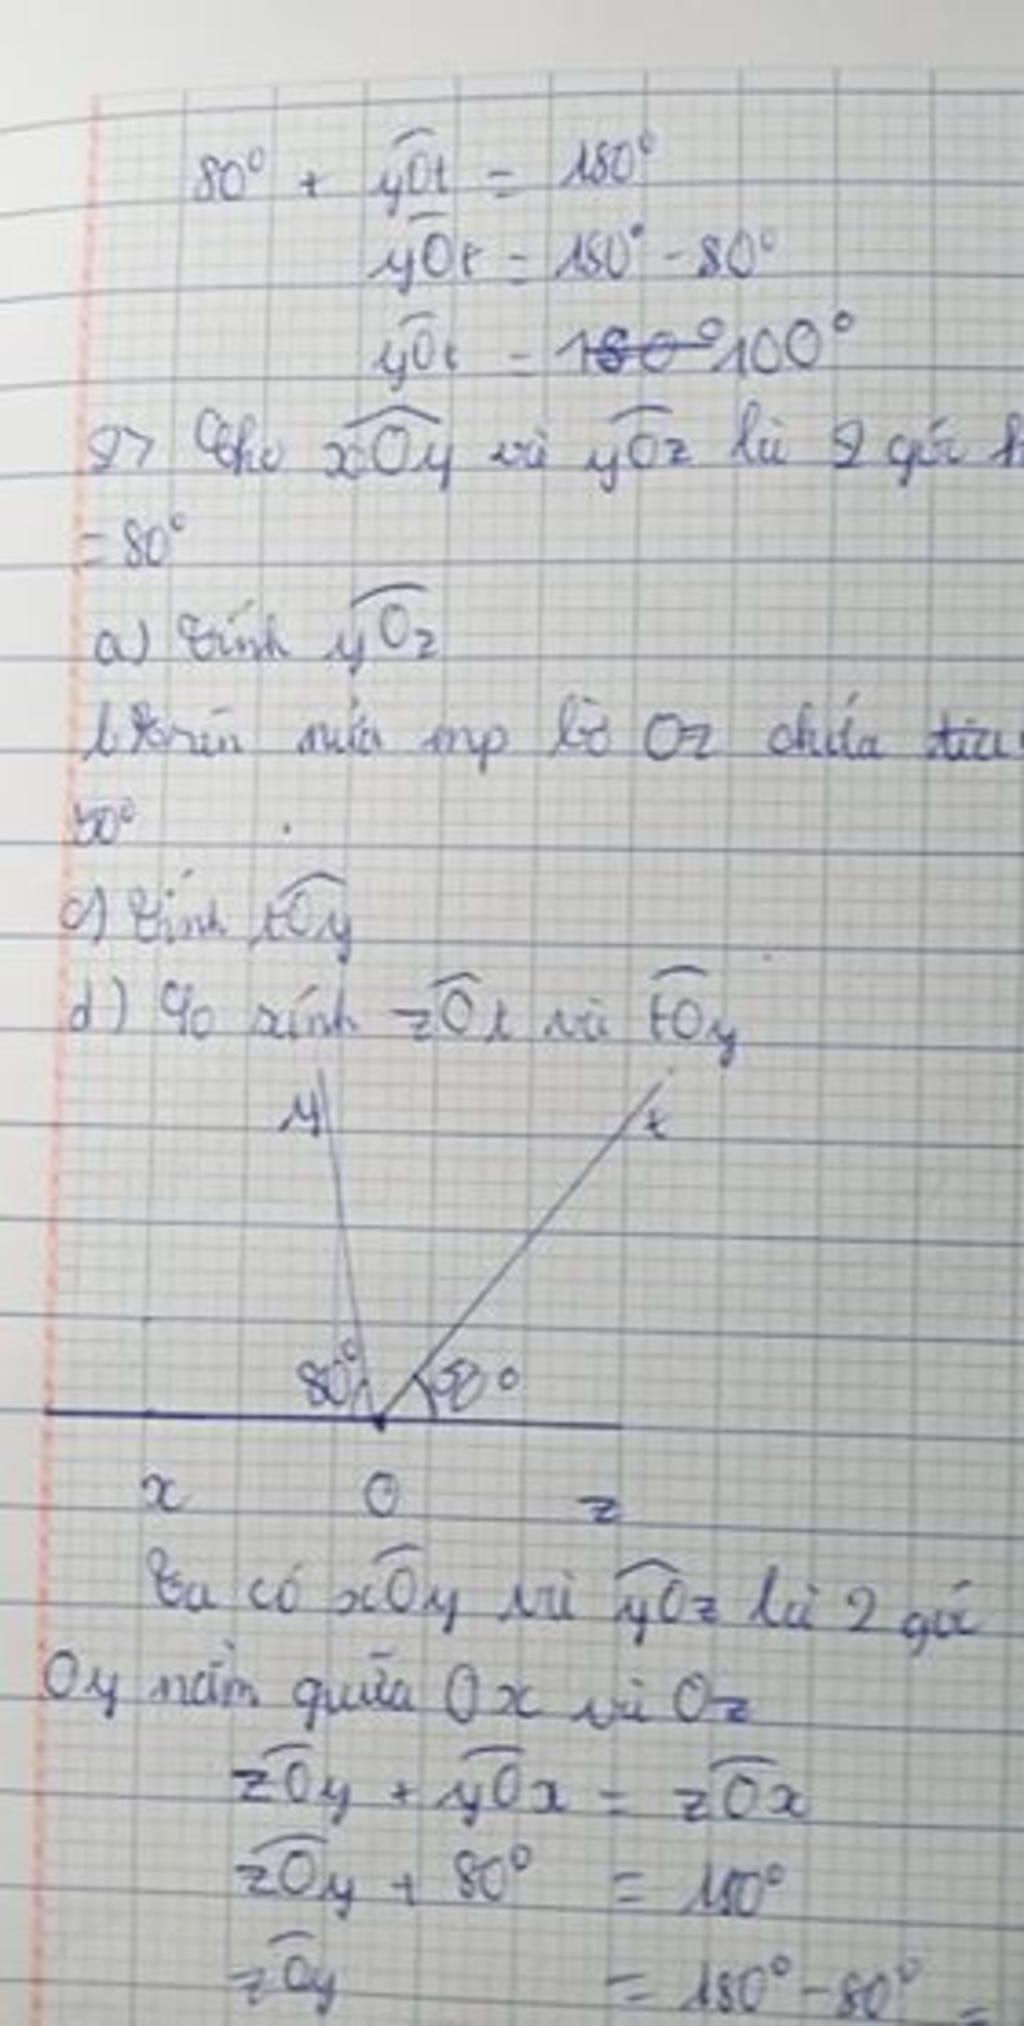 80° + yOt = 180°
yOt = 180° - 80°
yOt = 180° 100°
2> Cho xOy và yOz là 2 góc
= 80°
a) Tính yOz
b Trên nửa mp bờ Oz chứa
50°
c) Tính tOy
d) So sánh zOt và tOy
y t
80° 50°
x O z
Ta có xOy và yOz là 2 góc
Oy nằm giữa Ox và Oz
zOy + yOx = zOx
zOy + 80° = 180°
zOy = 180° - 80° =